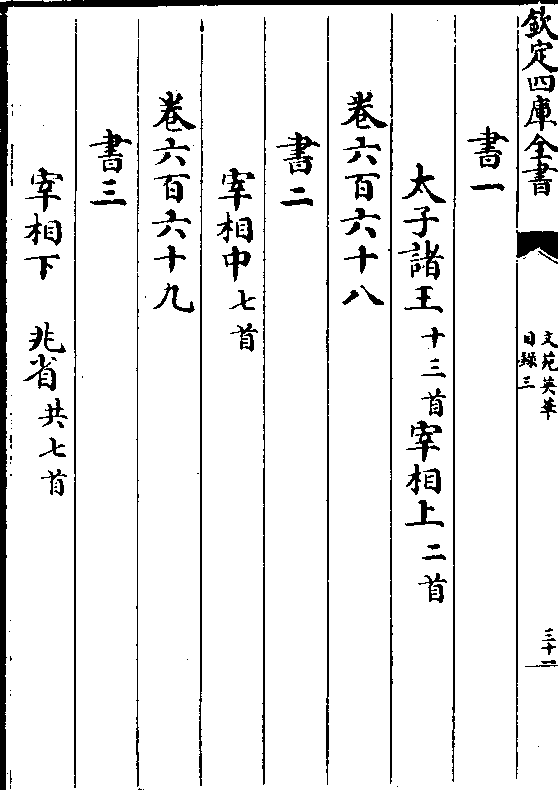 欽定四庫全書
文苑英華
目錄三
三十一
書一
太子諸王十三首宰相上二首
卷六百六十八
書二
宰相中七首
卷六百六十九
書三
宰相下 兆省共七首